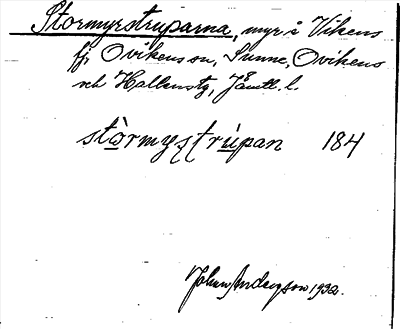 Stormyrstruparna, myr i Vikens
fj, Ovikens sn, Sunne, Ovikens
och Hallens tg, Jämtl. l.
stòrmyʂtrùpan 184
Johan Anderson 1932.